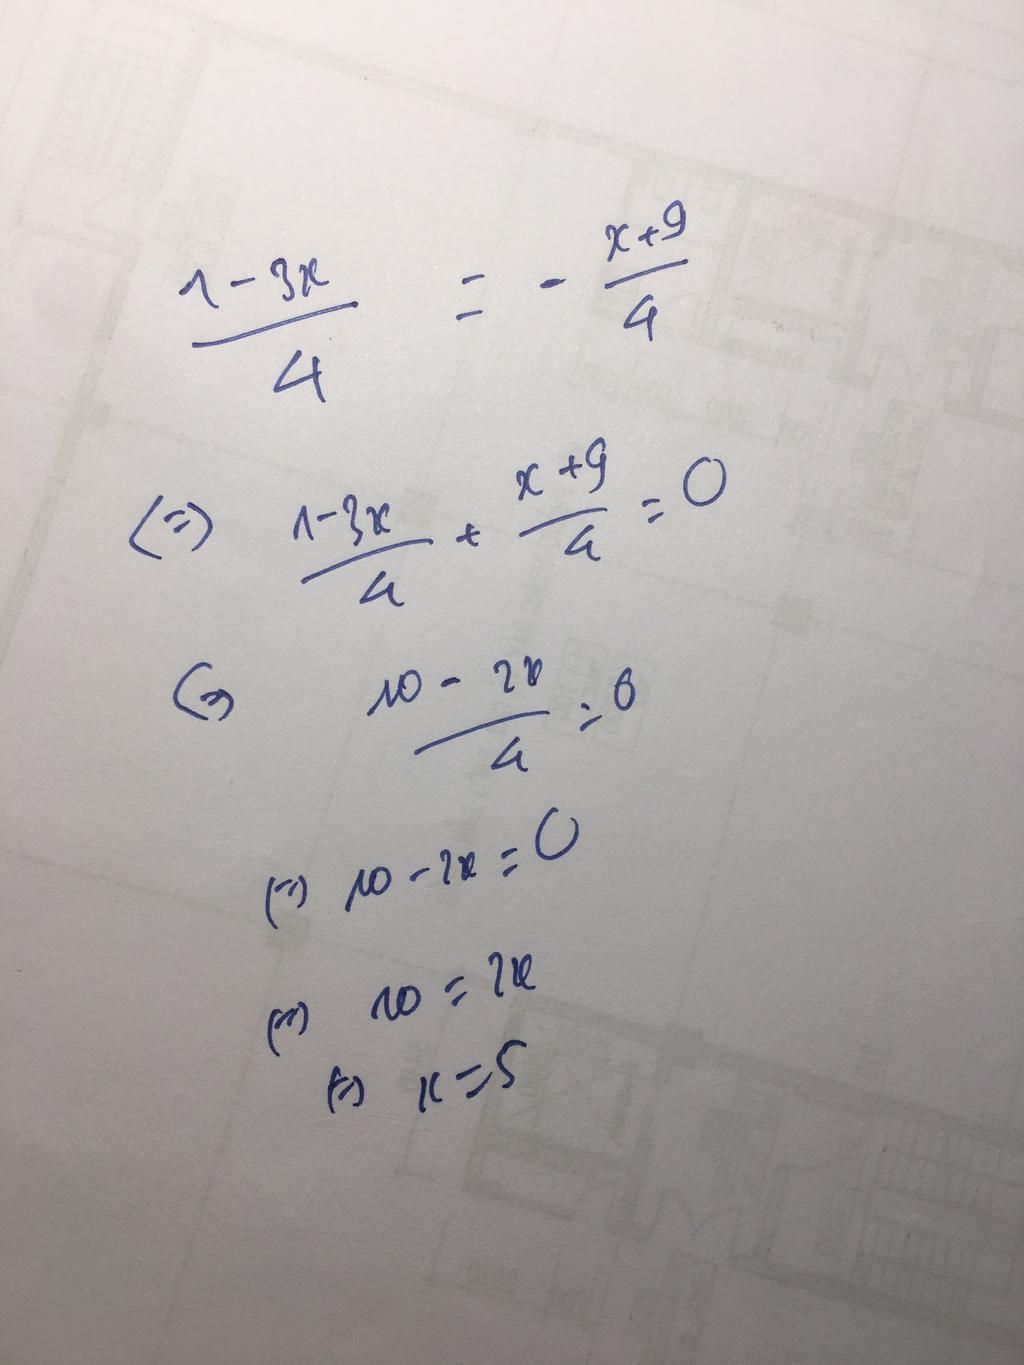 (1-3x)/4 = -(x+9)/4
(=) (1-3x)/4 + (x+9)/4 = 0
(=) (10-2x)/4 = 0
(=) 10-2x = 0
(=) 10 = 2x
(=) x = 5